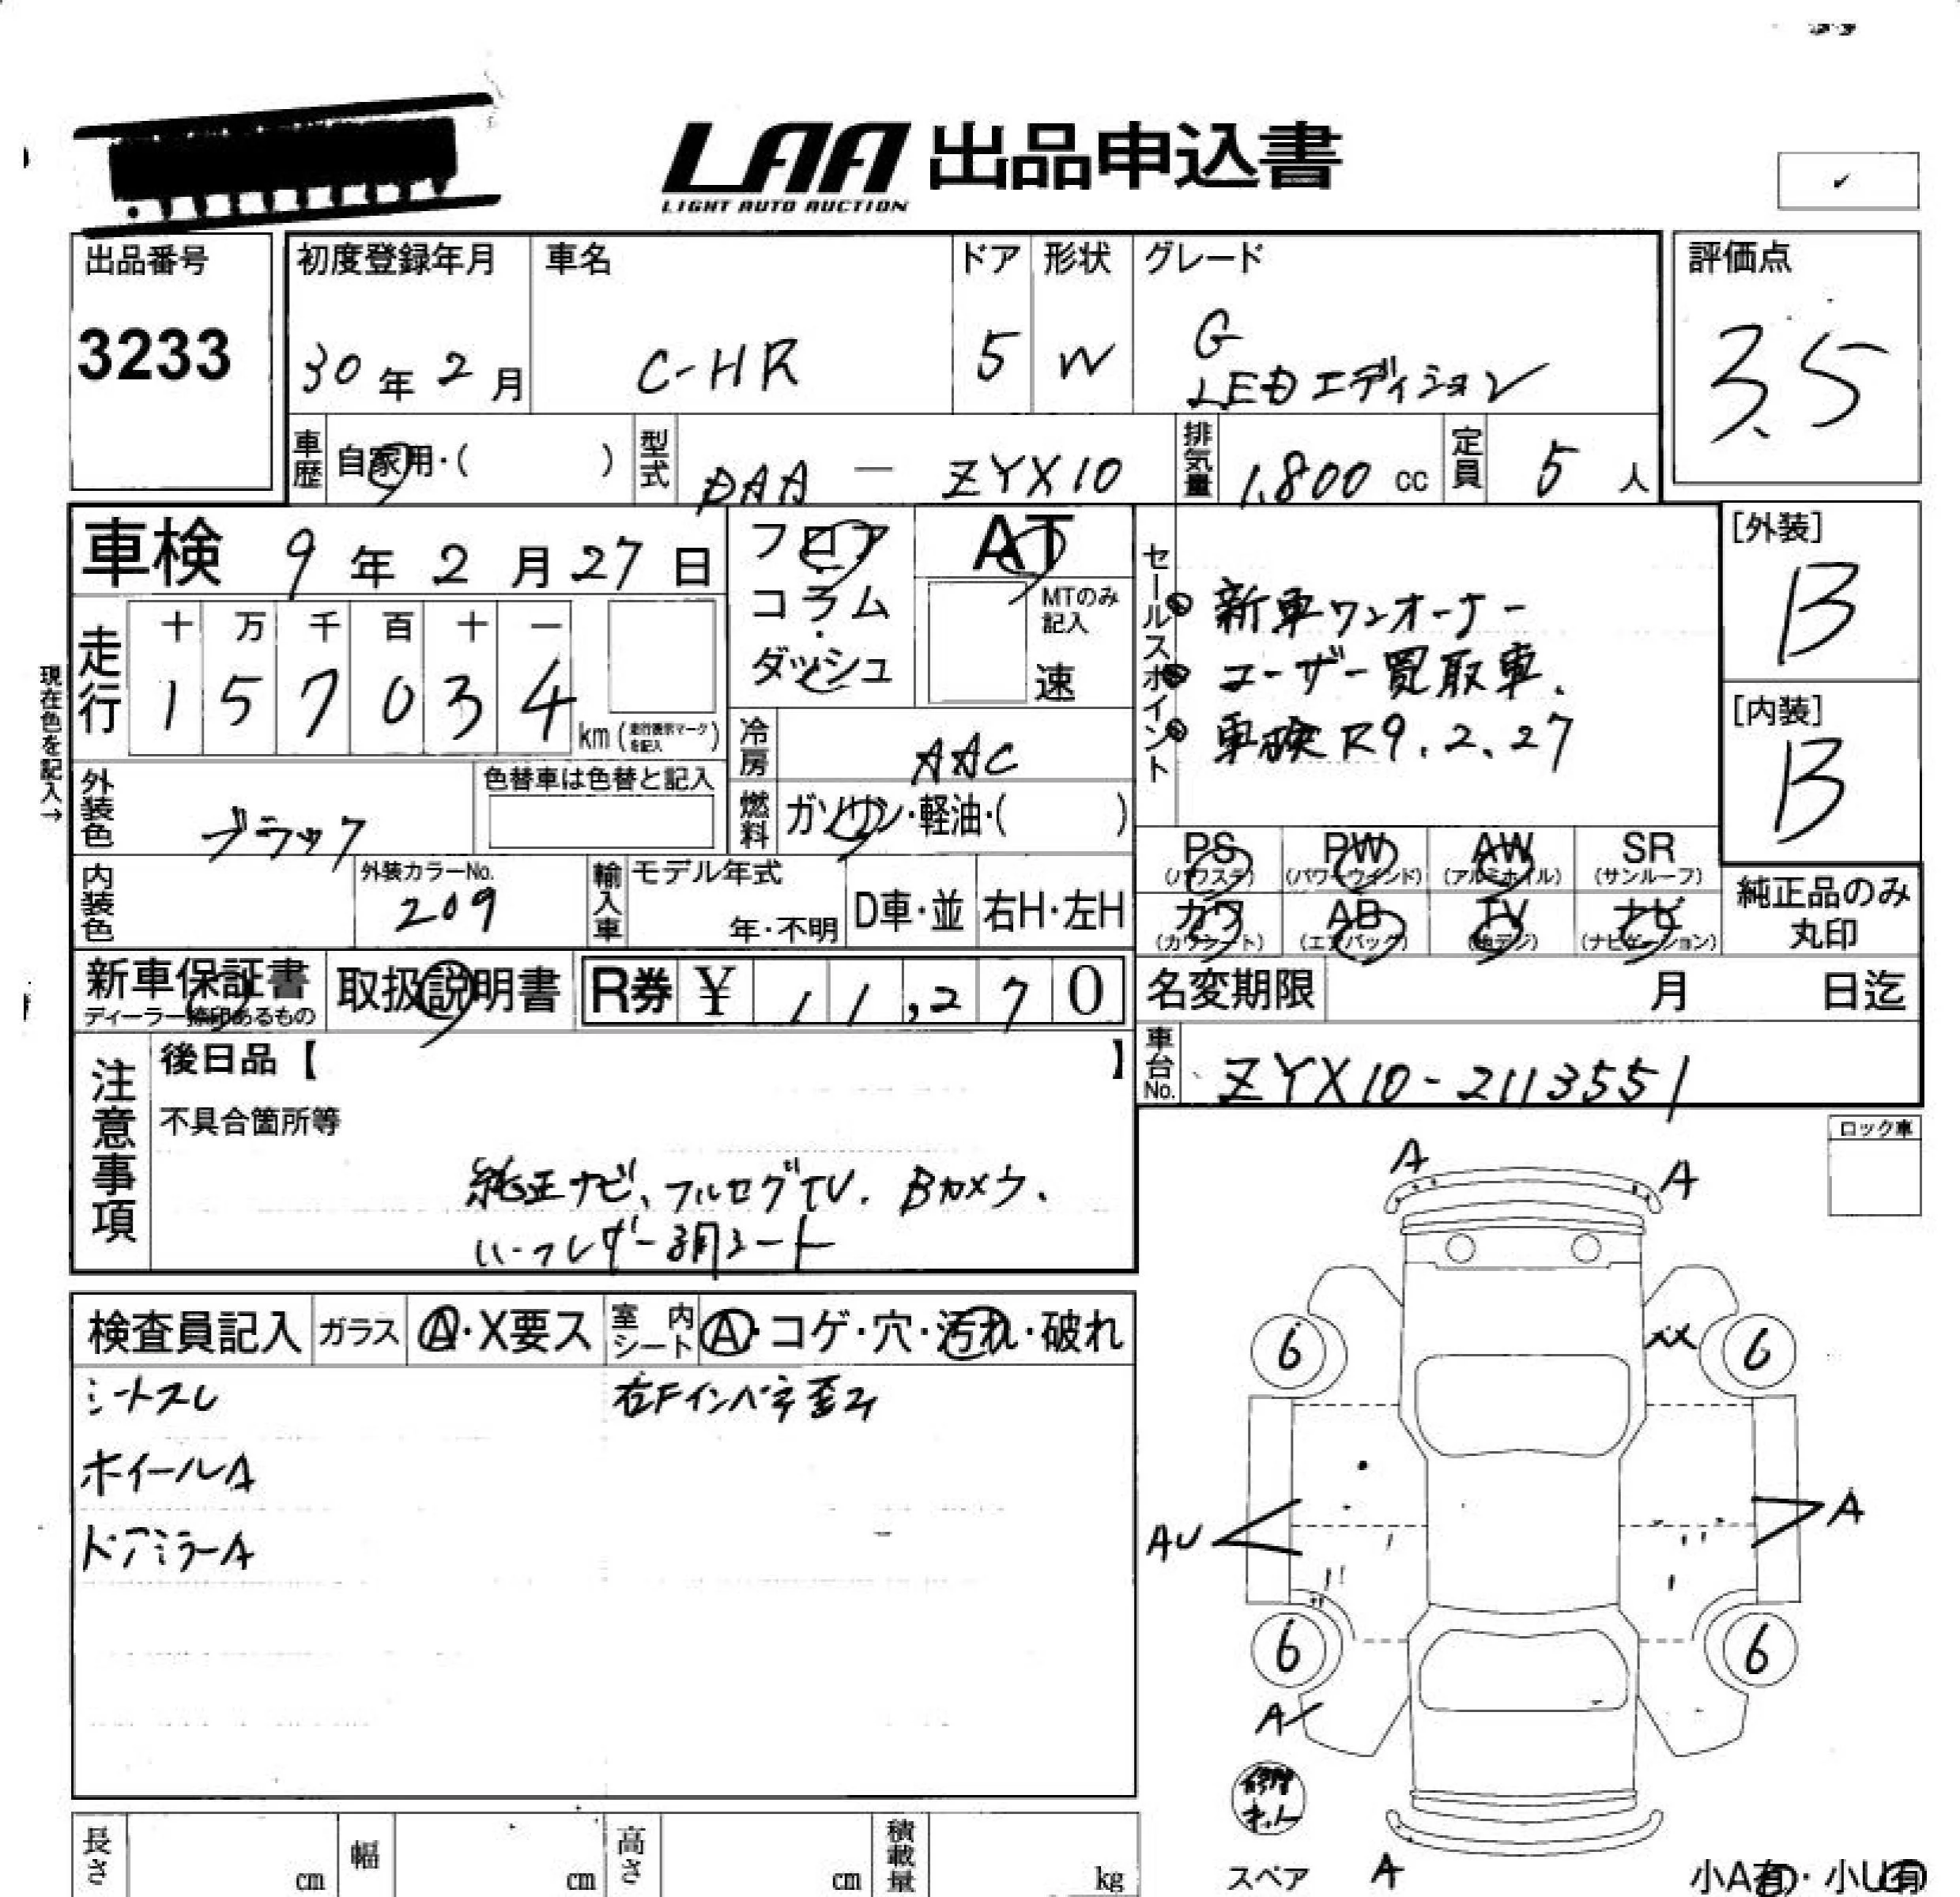 LAA 出品申込書
LIGHT AUTO AUCTION
出品番号
3233
初度登録年月
30年2月
車名
C-HR
ドア
5
形状
W
グレード
G
LEDエディション
評価点
3.5
車歴
自家用・( )
型式
DAA - ZYX10
排気量
1,800 cc
定員
5人
車検 9年2月27日
現在色を記入→
走行
十 万 千 百 十 一
1 5 7 0 3 4
km (走行表示マークを記入)
フロア
コラム
ダッシュ
AT
MTのみ記入
速
セールスポイント
新車ワンオーナー
ユーザー買取車.
車検R9.2.27
[外装]
B
[内装]
B
外装色
ブラック
色替車は色替と記入
冷房
AAC
燃料
ガソリン・軽油・( )
内装色
外装カラーNo.
209
輸入車
モデル年式
年・不明
D車・並
右H・左H
PS
(パワステ)
PW
(パワーウインド)
AW
(アルミホイル)
SR
(サンルーフ)
カワ
(カワシート)
AB
(エアバック)
TV
(地デジ)
ナビ
(ナビゲーション)
純正品のみ
丸印
新車保証書
ディーラー捺印あるもの
取扱説明書
R券 ¥ 11,270
名変期限 月 日迄
注意事項
後日品【 】
不具合箇所等
純正ナビ、フルセグTV. Bカメラ.
ハーフレザー調シート
車台No.
ZYX10-2113551
ロック車
検査員記入
ガラス
A・X要ス
室内シート
A・コゲ・穴・汚れ・破れ
シートスレ
右Fインパネ歪み
ホイールA
ドアミラーA
A
A
6
6
AU
A
6
6
A
スペア
A
小A有・小U有
長さ cm
幅 cm
高さ cm
積載量 kg